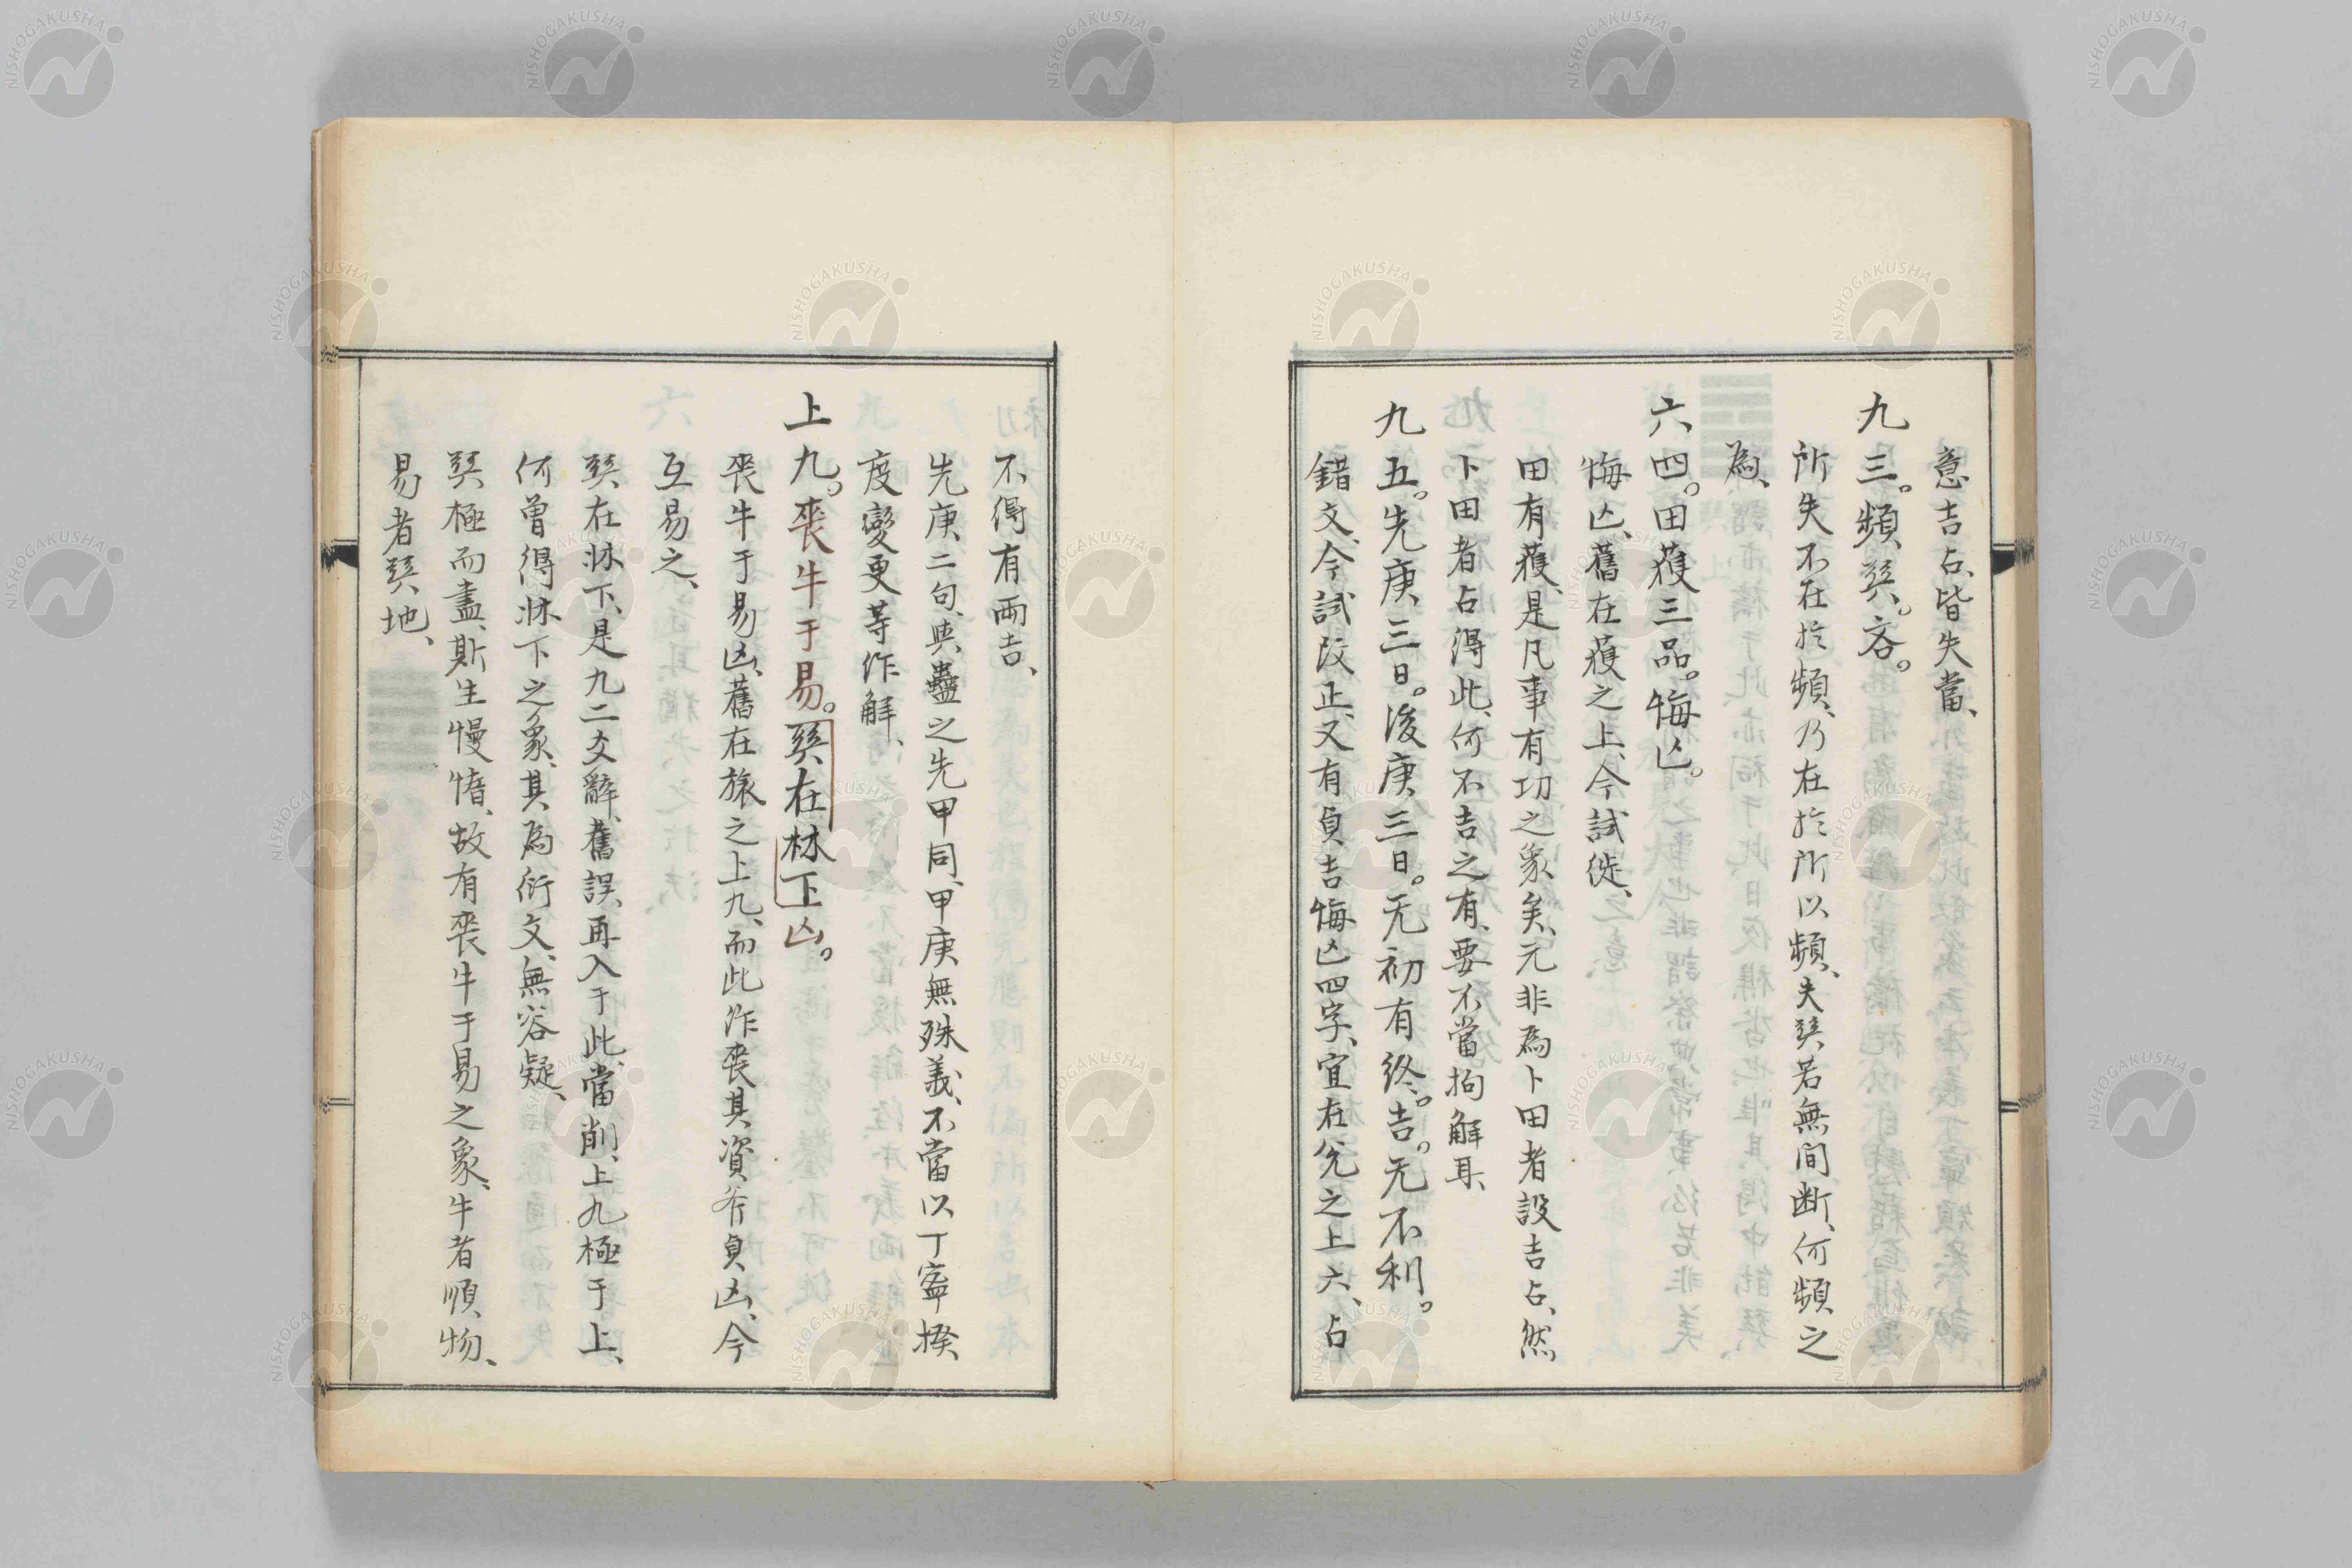 意吉占、皆失當、
九三。頻巽。吝。
所失不在於頻、乃在於所以頻、夫巽若無間断、何頻之
為、
六四。田獲三品。悔亡。
悔亡、舊在獲之上、今試徙、
田有獲、是凡事有功之象矣、元非為卜田者設吉占、然
卜田者占得此、何不吉之有、要不當拘解耳、
九五。先庚三日。後庚三日。无初有終。吉。无不利。
錯文、今試改正、又有貞吉悔亡四字、宜在兌之上六、占
不得有兩吉、
先庚二句、與蠱之先甲同、甲庚無殊義、不當以丁寧揆
度變更等作解、
上九。喪牛于易。巽在牀下凶。
喪牛于易凶、舊在旅之上九、而此作喪其資斧貞凶、今
互易之、
巽在牀下、是九二爻辭、舊誤再入于此、當削、上九極于上、
何曽得牀下之象、其為衍文、無容疑、
巽極而盡、斯生慢惰、故有喪牛于易之象、牛者順物、
易者巽地、
NISHOGAKUSHA